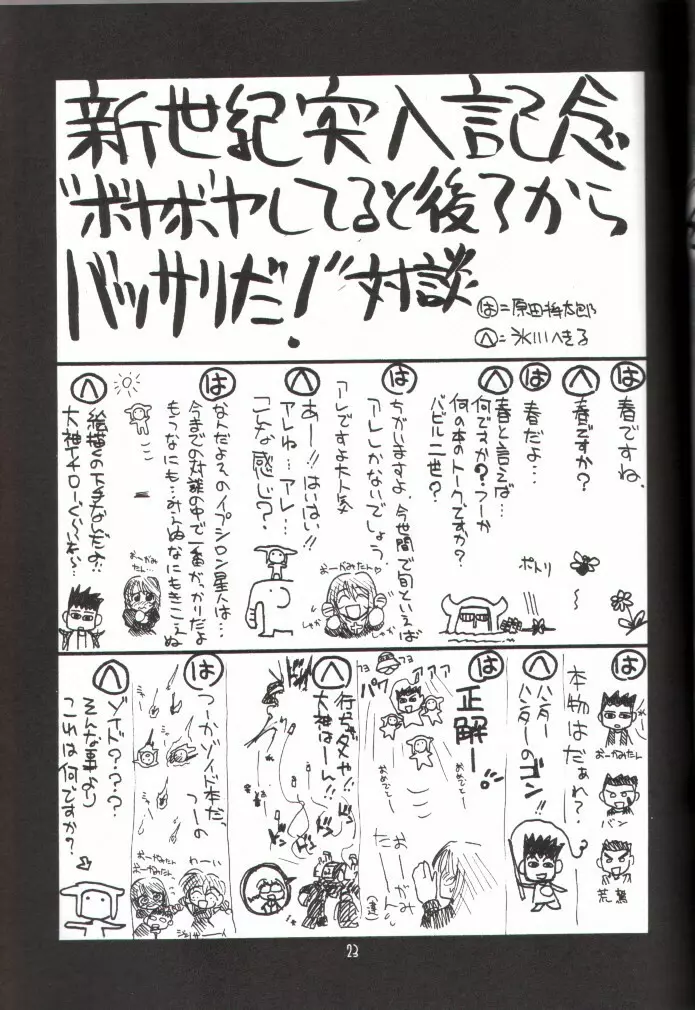 新世紀突入記念
"ボヤボヤしてると後ろから
バッサリだ！"対談
は＝原田将太郎
へ＝氷川へきる
は
春ですね、
へ
春ですか？
は
春だよ…
へ
春と言えば…
何ですか？つーか
何の本のトークですか？
バビル二世？
ポトリ
は
ちがいますよ、今世間で旬といえば
アレしかないでしょう
アレですよ大人気
おーがみたん♡
へ
あー!!はいはい!!
アレね…アレ…
こんな感じ？
は
なんだよそのイプシロン星人は…
今までの対談の中で一番がっかりだよ
もうなにも…みえぬなにもきこえぬ
おーがみたん…
へ
絵描くの下手なんだよ!!
大神イチローぐらいを〜…
は
本物はだぁれ？
おーがみたん
バン
荒鷲
へ
ハンター
ハンターのゴン!!
は
正解ー。
パワァァァ
おめでとー
おめでとー
おーがみたん
へ
行っちゃダメや!!
大神はーん!!
ドン
ドン
は
つーかゾイド本だ、
つーの
おーがみたん
おーがみたん
わーい
へ
ゾイド？？？
そんな事より
これは何ですか？
23